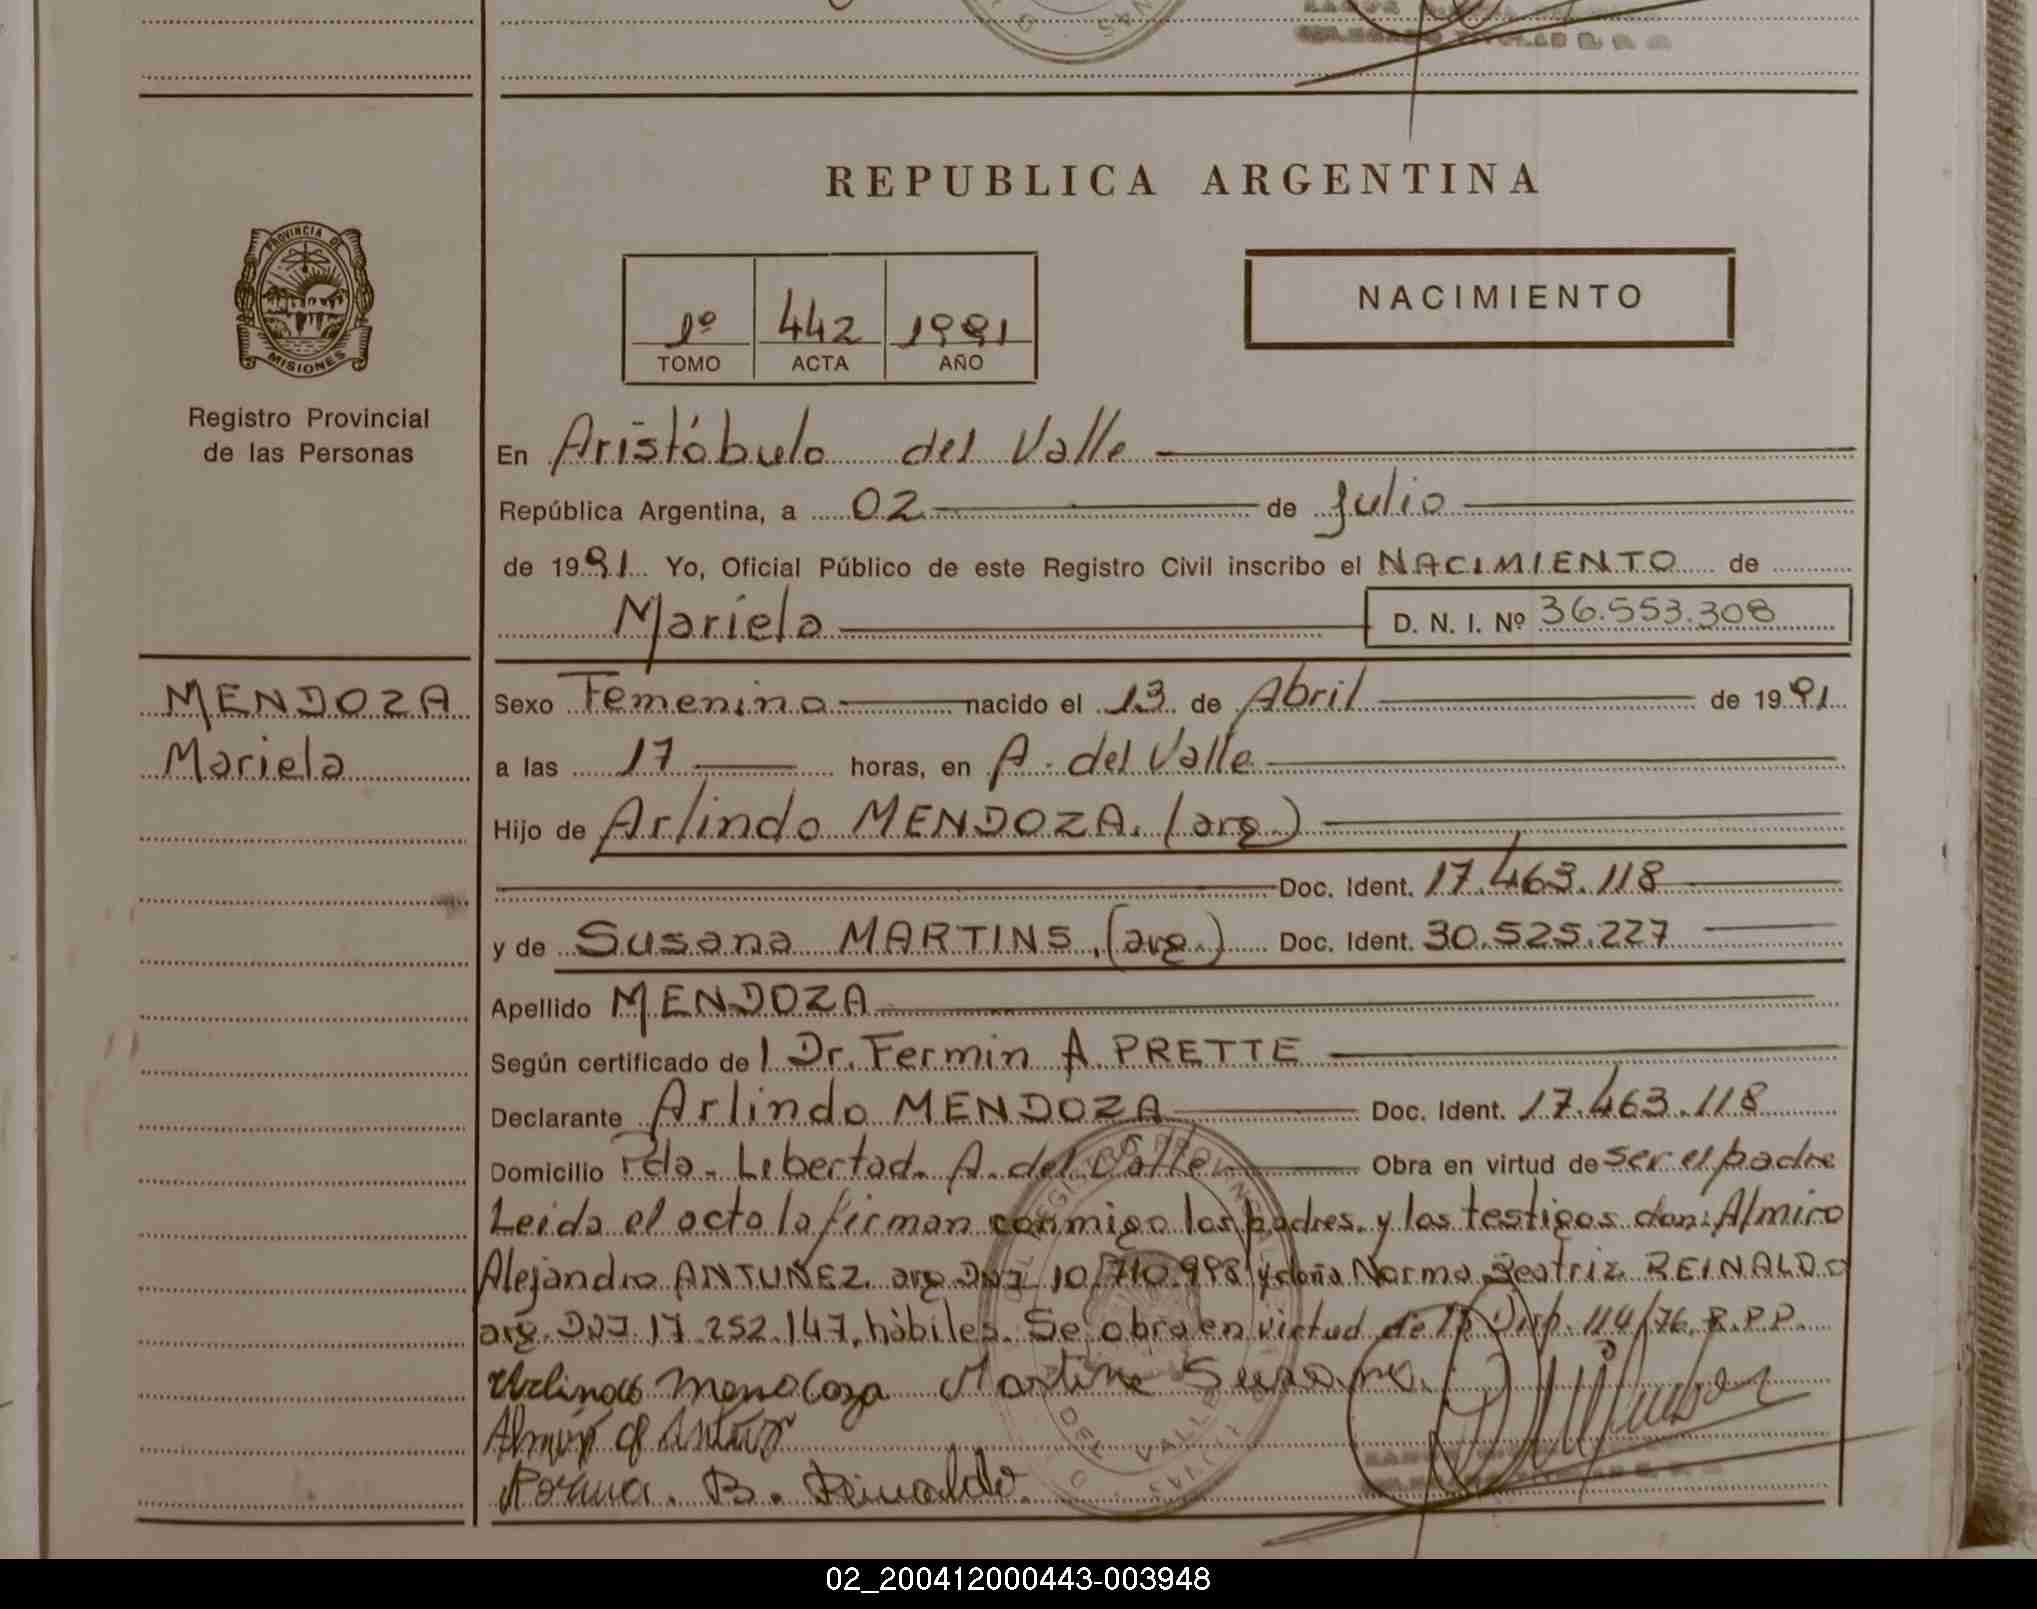 REPUBLICA ARGENTINA
PROVINCIA DE
MISIONES
Registro Provincial
de las Personas
1º 442 1991
TOMO ACTA AÑO
NACIMIENTO
En Aristóbulo del Valle
República Argentina, a 02 de Julio
de 1991 Yo, Oficial Público de este Registro Civil inscribo el NACIMIENTO de
Mariela D. N. I. Nº 36.553.308
MENDOZA
Mariela
Sexo Femenino nacido el 13 de Abril de 1991
a las 17 horas, en A. del Valle
Hijo de Arlindo MENDOZA. (arg.)
Doc. Ident. 17.463.118
y de Susana MARTINS, (arg.) Doc. Ident. 30.525.227
Apellido MENDOZA
Según certificado de l Dr. Fermin A. PRETTE
Declarante Arlindo MENDOZA Doc. Ident. 17.463.118
Domicilio Pda. Libertad. A. del Valle Obra en virtud de ser el padre
Leida el acta la firman conmigo los padres. y los testigos don: Almiro
Alejandro ANTUÑEZ. arg. DNI 10.710.998 y doña Norma Beatriz REINALDO
arg. DNI. 17.252.147, hábiles. Se obra en virtud de la Disp. 114/76. R.P.P.
Arlindo Mendoza Martins Susana.
Norma. B. Reinaldo
DEL VALLE
02_200412000443-003948